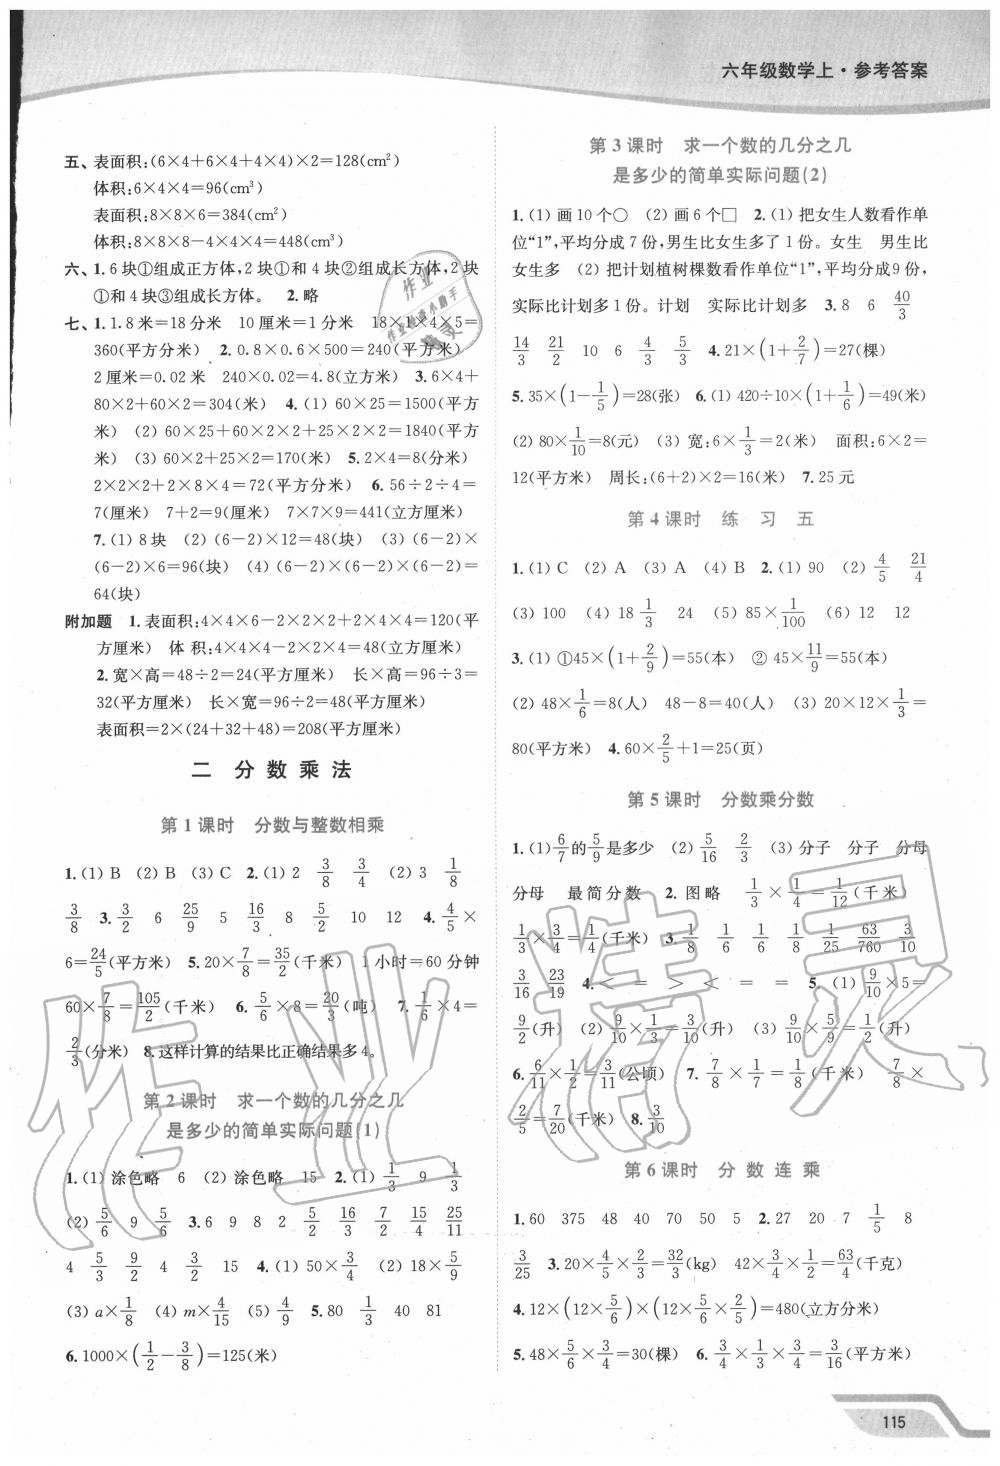 六年级数学上·参考答案
五、表面积:(6×4+6×4+4×4)×2=128(cm²)
体积:6×4×4=96(cm³)
表面积:8×8×6=384(cm²)
体积:8×8×8-4×4×4=448(cm³)
六、1.6块①组成正方体,2块①和4块②组成长方体,2块
①和4块③组成长方体。 2.略
七、1.1.8米=18分米 10厘米=1分米 18×1×4×5=
360(平方分米) 2.0.8×0.6×500=240(平方米)
2厘米=0.02米 240×0.02=4.8(立方米) 3.6×4+
80×2+60×2=304(米) 4.(1) 60×25=1500(平方
米) (2) 60×25+60×2×2+25×2×2=1840(平方
米) (3) 60×2+25×2=170(米) 5.2×4=8(分米)
2×2×2+2×8×4=72(平方分米) 6.56÷2÷4=
7(厘米) 7+2=9(厘米) 7×7×9=441(立方厘米)
7.(1) 8块 (2) (6-2)×12=48(块) (3) (6-2)×
(6-2)×6=96(块) (4) (6-2)×(6-2)×(6-2)=
64(块)
附加题 1.表面积:4×4×6-2×2×2+2×4×4=120(平
方厘米) 体积:4×4×4-2×2×4=48(立方厘米)
2.宽×高=48÷2=24(平方厘米) 长×高=96÷3=
32(平方厘米) 长×宽=96÷2=48(平方厘米)
表面积=2×(24+32+48)=208(平方厘米)
二 分数乘法
第1课时 分数与整数相乘
1.(1) B (2) B (3) C 2.(1) 2 3/8 3/4 (2) 3 1/8
3/8 3. 3/2 6 25/9 5 16/3 8 5/2 10 12 4. 4/5×
6=24/5(平方米) 5.20×7/8=35/2(千米) 1小时=60分钟
60×7/8=105/2(千米) 6. 5/6×8=20/3(吨) 7. 1/6×4=
2/3(分米) 8.这样计算的结果比正确结果多4。
第2课时 求一个数的几分之几
是多少的简单实际问题(1)
1.(1) 涂色略 6 (2) 涂色略 15 2.(1) 1/3 9 1/3
(2) 5/6 9 5/6 3.6 9 8 2 5/2 16/3 7/2 15/4 25/11
4 5/3 9/2 4 3/2 15 4.(1) 50×3/4 (2) 18×5/9
(3) a×1/8 (4) m×4/15 (5) 4/9 5.80 1/3 40 81
6.1000×(1/2-3/8)=125(米)
第3课时 求一个数的几分之几
是多少的简单实际问题(2)
1.(1) 画10个○ (2) 画6个□ 2.(1) 把女生人数看作单
位“1”,平均分成7份,男生比女生多了1份。女生 男生比
女生多 (2) 把计划植树棵数看作单位“1”,平均分成9份,
实际比计划多1份。计划 实际比计划多 3.8 6 40/3
14/3 21/2 10 6 4/3 5/3 4.21×(1+2/7)=27(棵)
5.35×(1-1/5)=28(张) 6.(1) 420÷10×(1+1/6)=49(米)
(2) 80×1/10=8(元) (3) 宽:6×1/3=2(米) 面积:6×2=
12(平方米) 周长:(6+2)×2=16(米) 7.25元
第4课时 练习五
1.(1) C (2) A (3) A (4) B 2.(1) 90 (2) 4/5 21/4
(3) 100 (4) 18 1/3 24 (5) 85×1/100 (6) 12 12
3.(1) ①45×(1+2/9)=55(本) ② 45×11/9=55(本)
(2) 48×1/6=8(人) 48-8=40(人) (3) 20×12×1/3=
80(平方米) 4.60×2/5+1=25(页)
第5课时 分数乘分数
1.(1) 6/7的5/9是多少 (2) 5/16 2/3 (3) 分子 分子 分母
分母 最简分数 2.图略 1/3×1/4=1/12(千米)
1/3×3/4=1/4(千米) 3. 1/8 1/6 1/6 1/8 1/25 63/760 3/10
3/16 23/19 4.< = > < = = 5.(1) 9/10×5=
9/2(升) (2) 9/10×1/3=3/10(升) (3) 9/10×5/9=1/2(升)
6. 6/11×1/2=3/11(公顷) 7. 7/8×1/7=1/8(千米) 7/8×
2/5=7/20(千米) 8. 3/10
第6课时 分数连乘
1.60 375 48 40 70 50 5 2.27 20 7 1/5 8
3/25 3.20×4/5×2/3=32/3(kg) 42×3/4×1/2=63/4(千克)
4.12×(12×5/6)×(12×5/6×2/5)=480(立方分米)
5.48×5/6×3/4=30(棵) 6. 3/4×1/3×3/4=3/16(平方米)
115
作业精灵